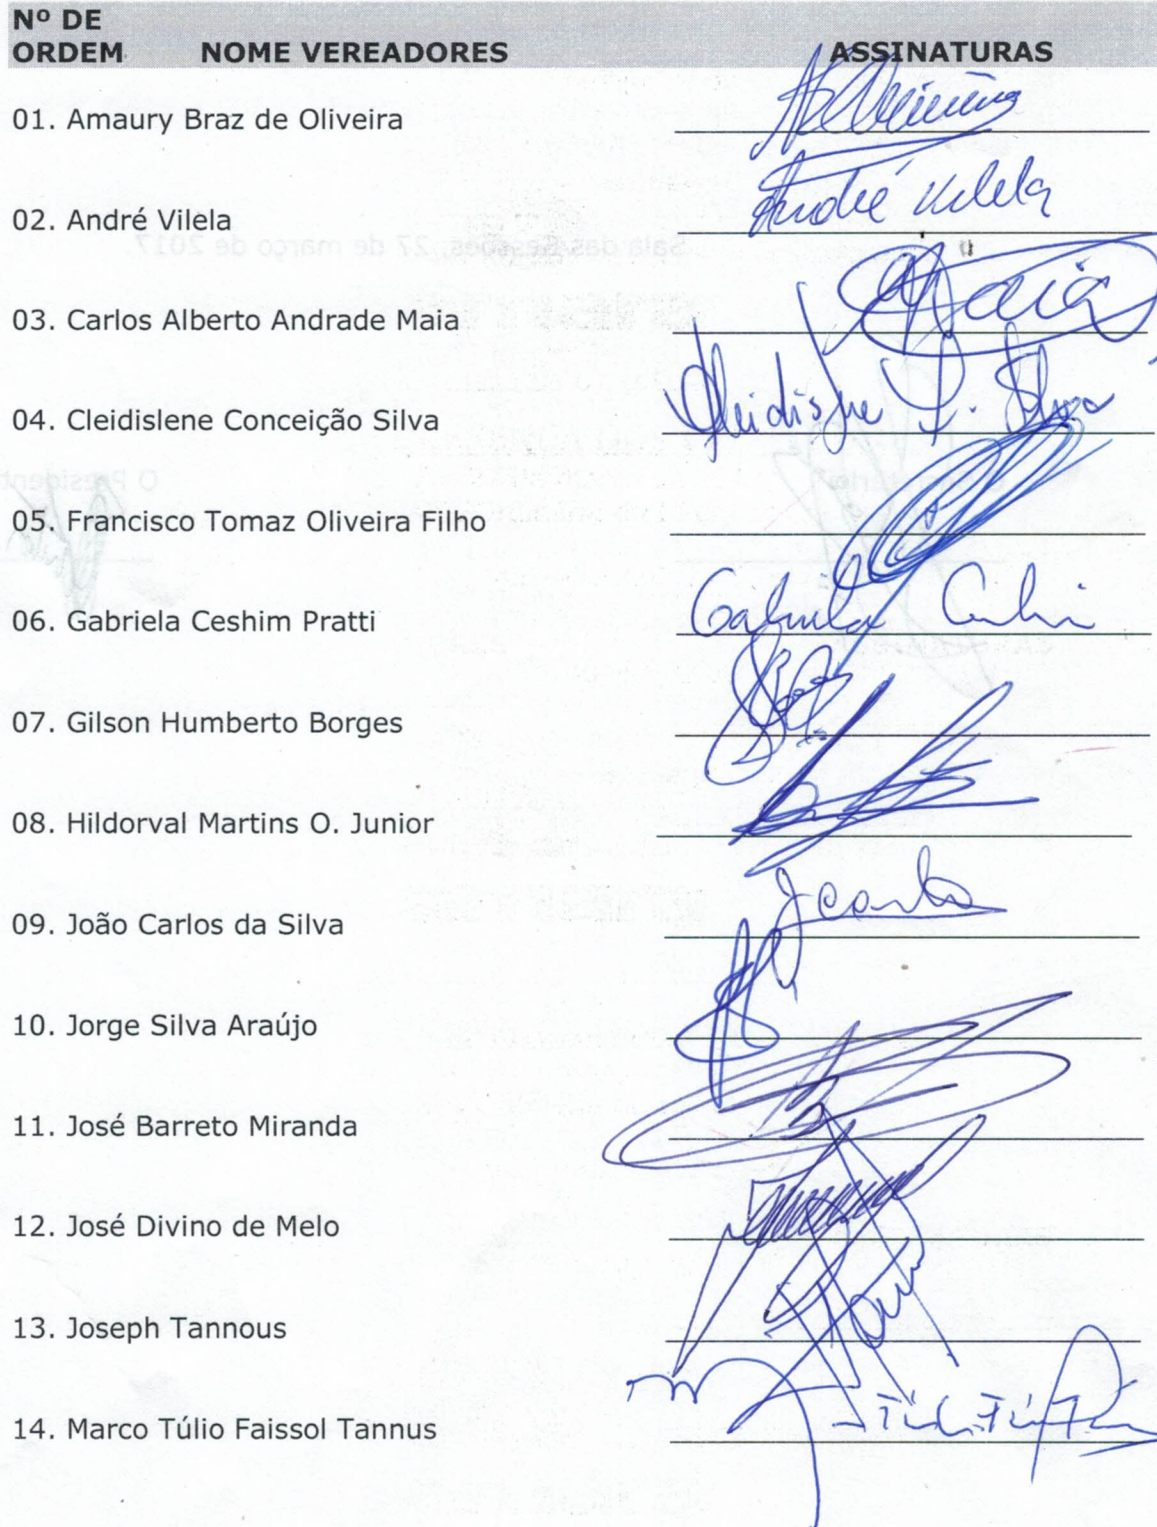 Nº DE
ORDEM NOME VEREADORES ASSINATURAS
01. Amaury Braz de Oliveira
02. André Vilela André Vilela
03. Carlos Alberto Andrade Maia Maia
04. Cleidislene Conceição Silva
05. Francisco Tomaz Oliveira Filho
06. Gabriela Ceshim Pratti Gabriela
07. Gilson Humberto Borges
08. Hildorval Martins O. Junior
09. João Carlos da Silva
10. Jorge Silva Araújo
11. José Barreto Miranda
12. José Divino de Melo
13. Joseph Tannous
14. Marco Túlio Faissol Tannus